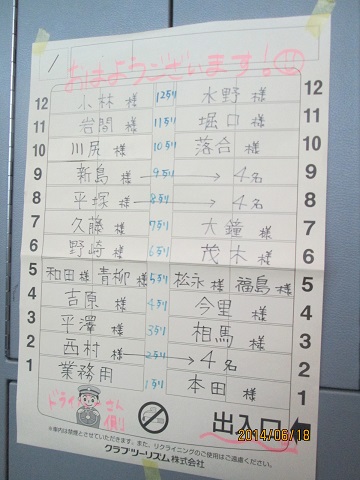 1
おはようございます!
12 小林 様 12列 水野 様 12
11 岩間 様 11列 堀口 様 11
10 川尻 様 10列 落合 様 10
9 新島 様 9列 → 4名 9
8 平塚 様 8列 → 4名 8
7 久藤 様 7列 大鐘 様 7
6 野崎 様 6列 茂木 様 6
5 和田 様 青柳 様 5列 松永 様 福島 様 5
4 吉原 様 4列 今里 様 4
3 平澤 様 3列 相馬 様 3
2 西村 様 2列 → 4名 2
1 業務用 1列 本田 様 1
ドライバーさん側
出入口
2014/06/18
※車内は禁煙とさせていただきます。また、リクライニングのご使用はご遠慮ください。
クラブツーリズム株式会社